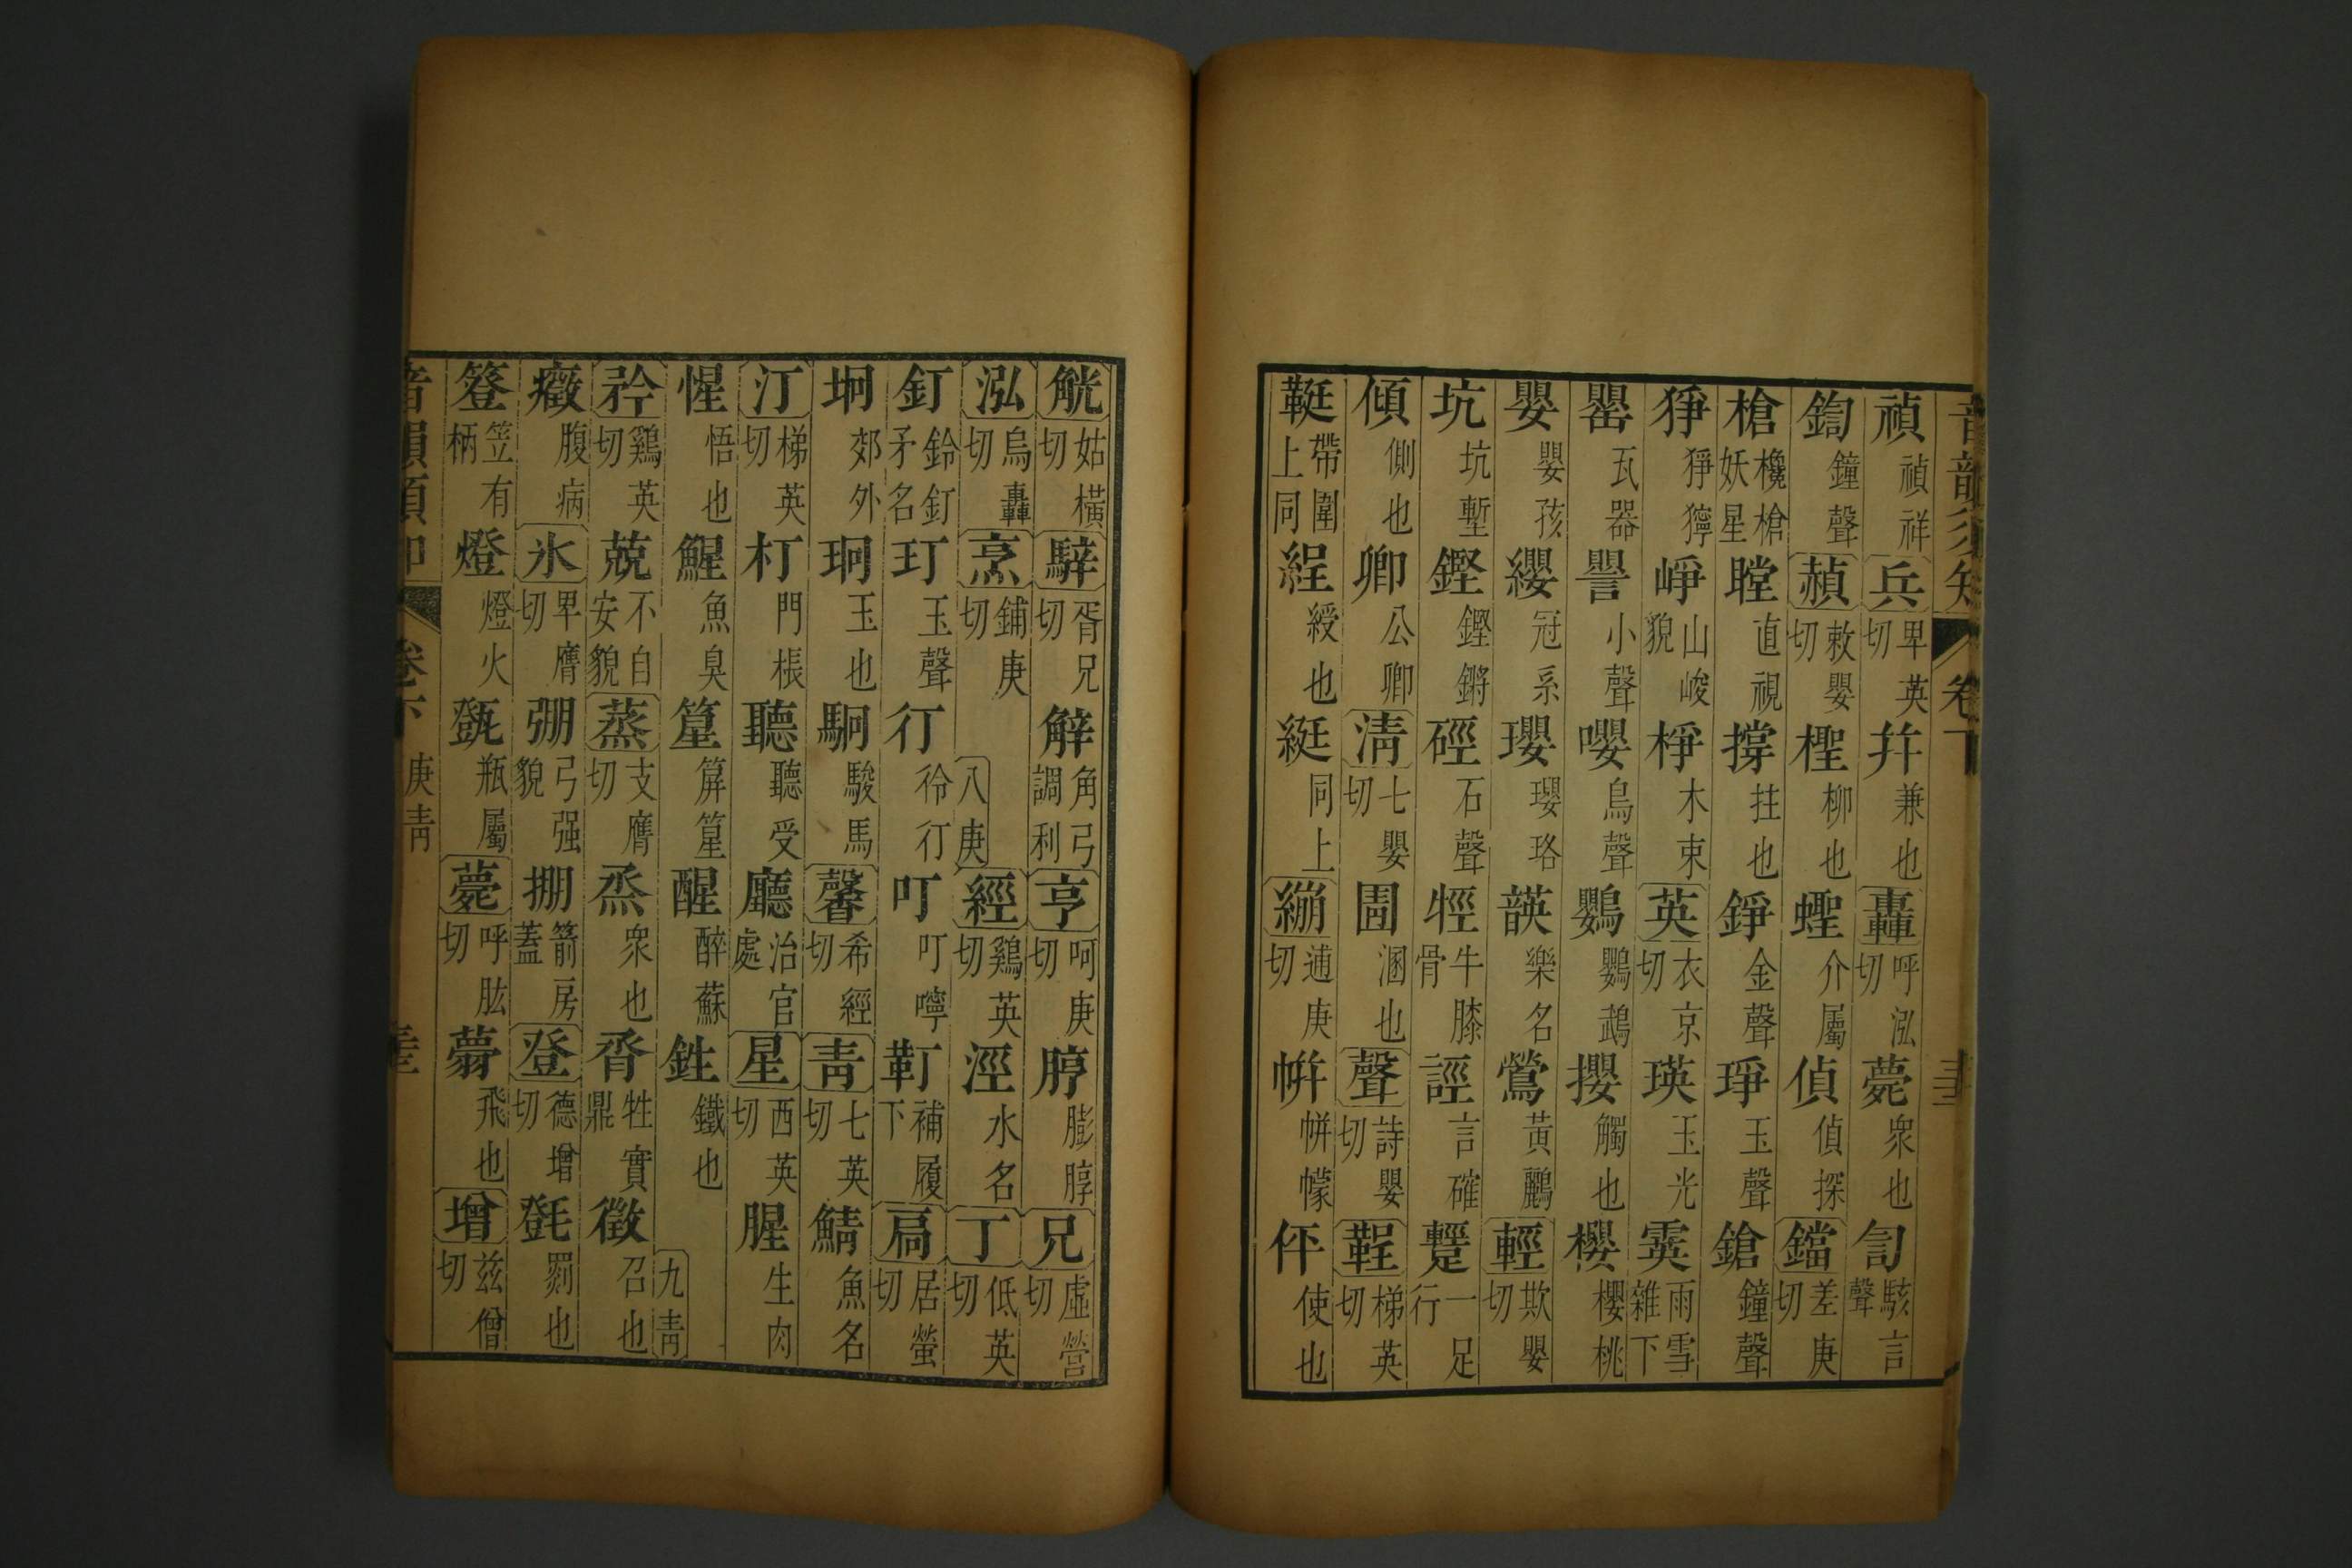 音韻須知 卷下
禎禎祥兵卑英切幷兼也轟呼泓切薨衆也訇駭言聲
鍧鐘聲赬敕嬰切檉柳也蟶介屬偵偵探鐺差庚切
槍欃槍妖星瞠直視撐拄也錚金聲琤玉聲鎗鐘聲
猙猙獰崢山峻貌棦木束英衣京切瑛玉光霙雨雪雜下
罌瓦器譻小聲嚶鳥聲鸚鸚鵡攖觸也櫻櫻桃
嬰嬰孩纓冠系瓔瓔珞韺樂名鶯黃鸝輕欺嬰切
坑坑塹鏗鏗鏘硜石聲牼牛膝骨誙言確䠮一足行
傾側也卿公卿淸七嬰切圊溷也聲詩嬰切鞓梯英切
鞓帶圍上同綎綬也綎同上繃逋庚切帲帡幪伻使也
觥姑橫切騂胥兄切觲角弓調利亨呵庚切脝膨脝兄虛營切
泓烏轟切烹鋪庚切 八庚 經鷄英切涇水名丁低英切
釘鈴釘矛名玎玉聲仃彾仃叮叮嚀靪補履下扃居螢切
坰郊外珦玉也駉駿馬馨希經切靑七英切鯖魚名
汀梯英切朾門棖聽聽受廳治官處星西英切腥生肉
惺悟也鯹魚臭篂箳篂醒醉蘇鉎鐵也 九靑
矜鷄英切兢不自安貌蒸支膺切烝衆也脀牲實鼎徵召也
癥腹病氷卑膺切弸弓强貌掤箭房蓋登德增切㲪罽也
簦笠有柄燈燈火甑瓶屬薨呼肱切㝁飛也增兹僧切
音韻須知 卷下 庚靑